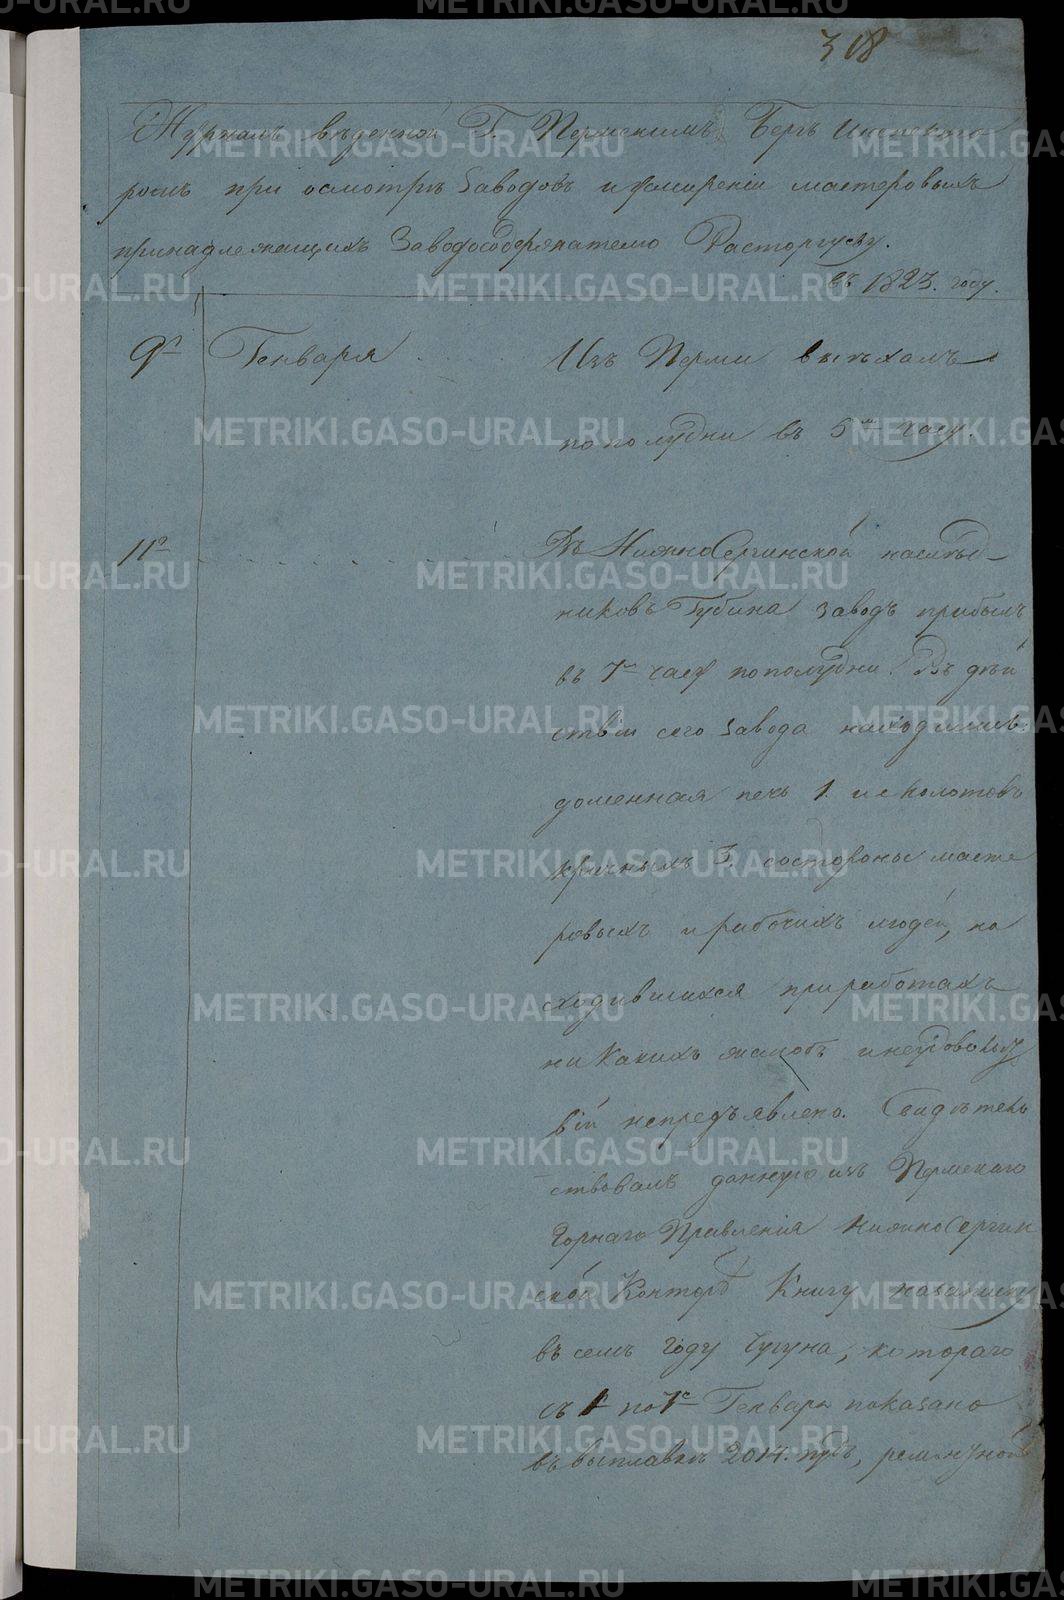 318
Журналъ веденной Г. Пермскимъ Бергъ Инспекто
ромъ при осмотрѣ Заводовъ и усмиреніи мастеровыхъ
принадлежащихъ Заводосодержателю Расторгуеву.
въ 1823. году.
9го Генваря Изъ Перми выѣхалъ
по полудни въ 5м часу.
11го Въ НижноСергинской наслѣд-
никовъ Губина заводъ прибылъ
въ 7м часу по полудни. Въ дѣй
ствіи сего завода находились:
доменная печь 1. и молотовъ
кричныхъ 3, состороны масте
ровыхъ и рабочихъ людей, на
ходившихся при работахъ
никакихъ жалобъ и неудоволь
вій непредъявлено. Свидѣтель
ствовалъ данную изъ Пермскаго
Горнаго Правленія НижноСергин
ской Конторѣ Книгу на записку
въ семъ году Чугуна, котораго
съ 1го по 7е Генваря показано
въ выплавкѣ 2014. пудъ,
METRIKI.GASO-URAL.RU